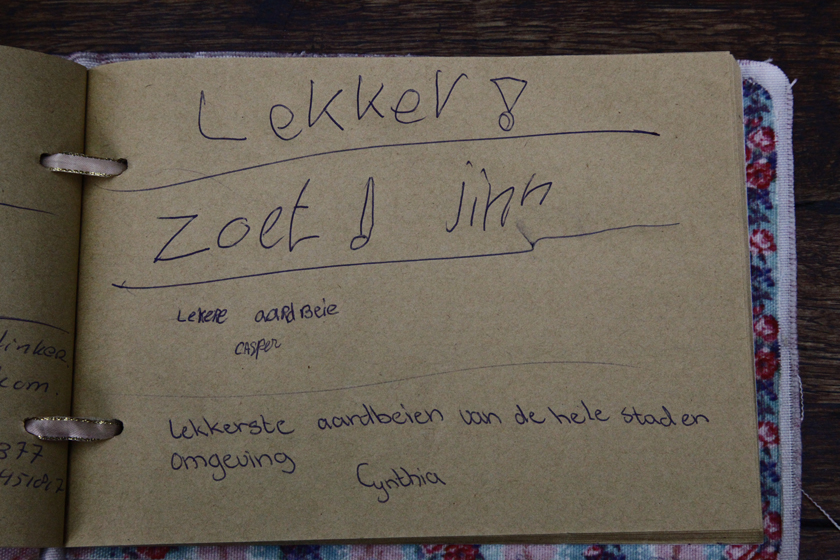 Lekker!
zoet! jinn
Lekere aardbeie
CASPER
Lekkerste aardbeien van de hele stad en
omgeving
Cynthia
kom.
377